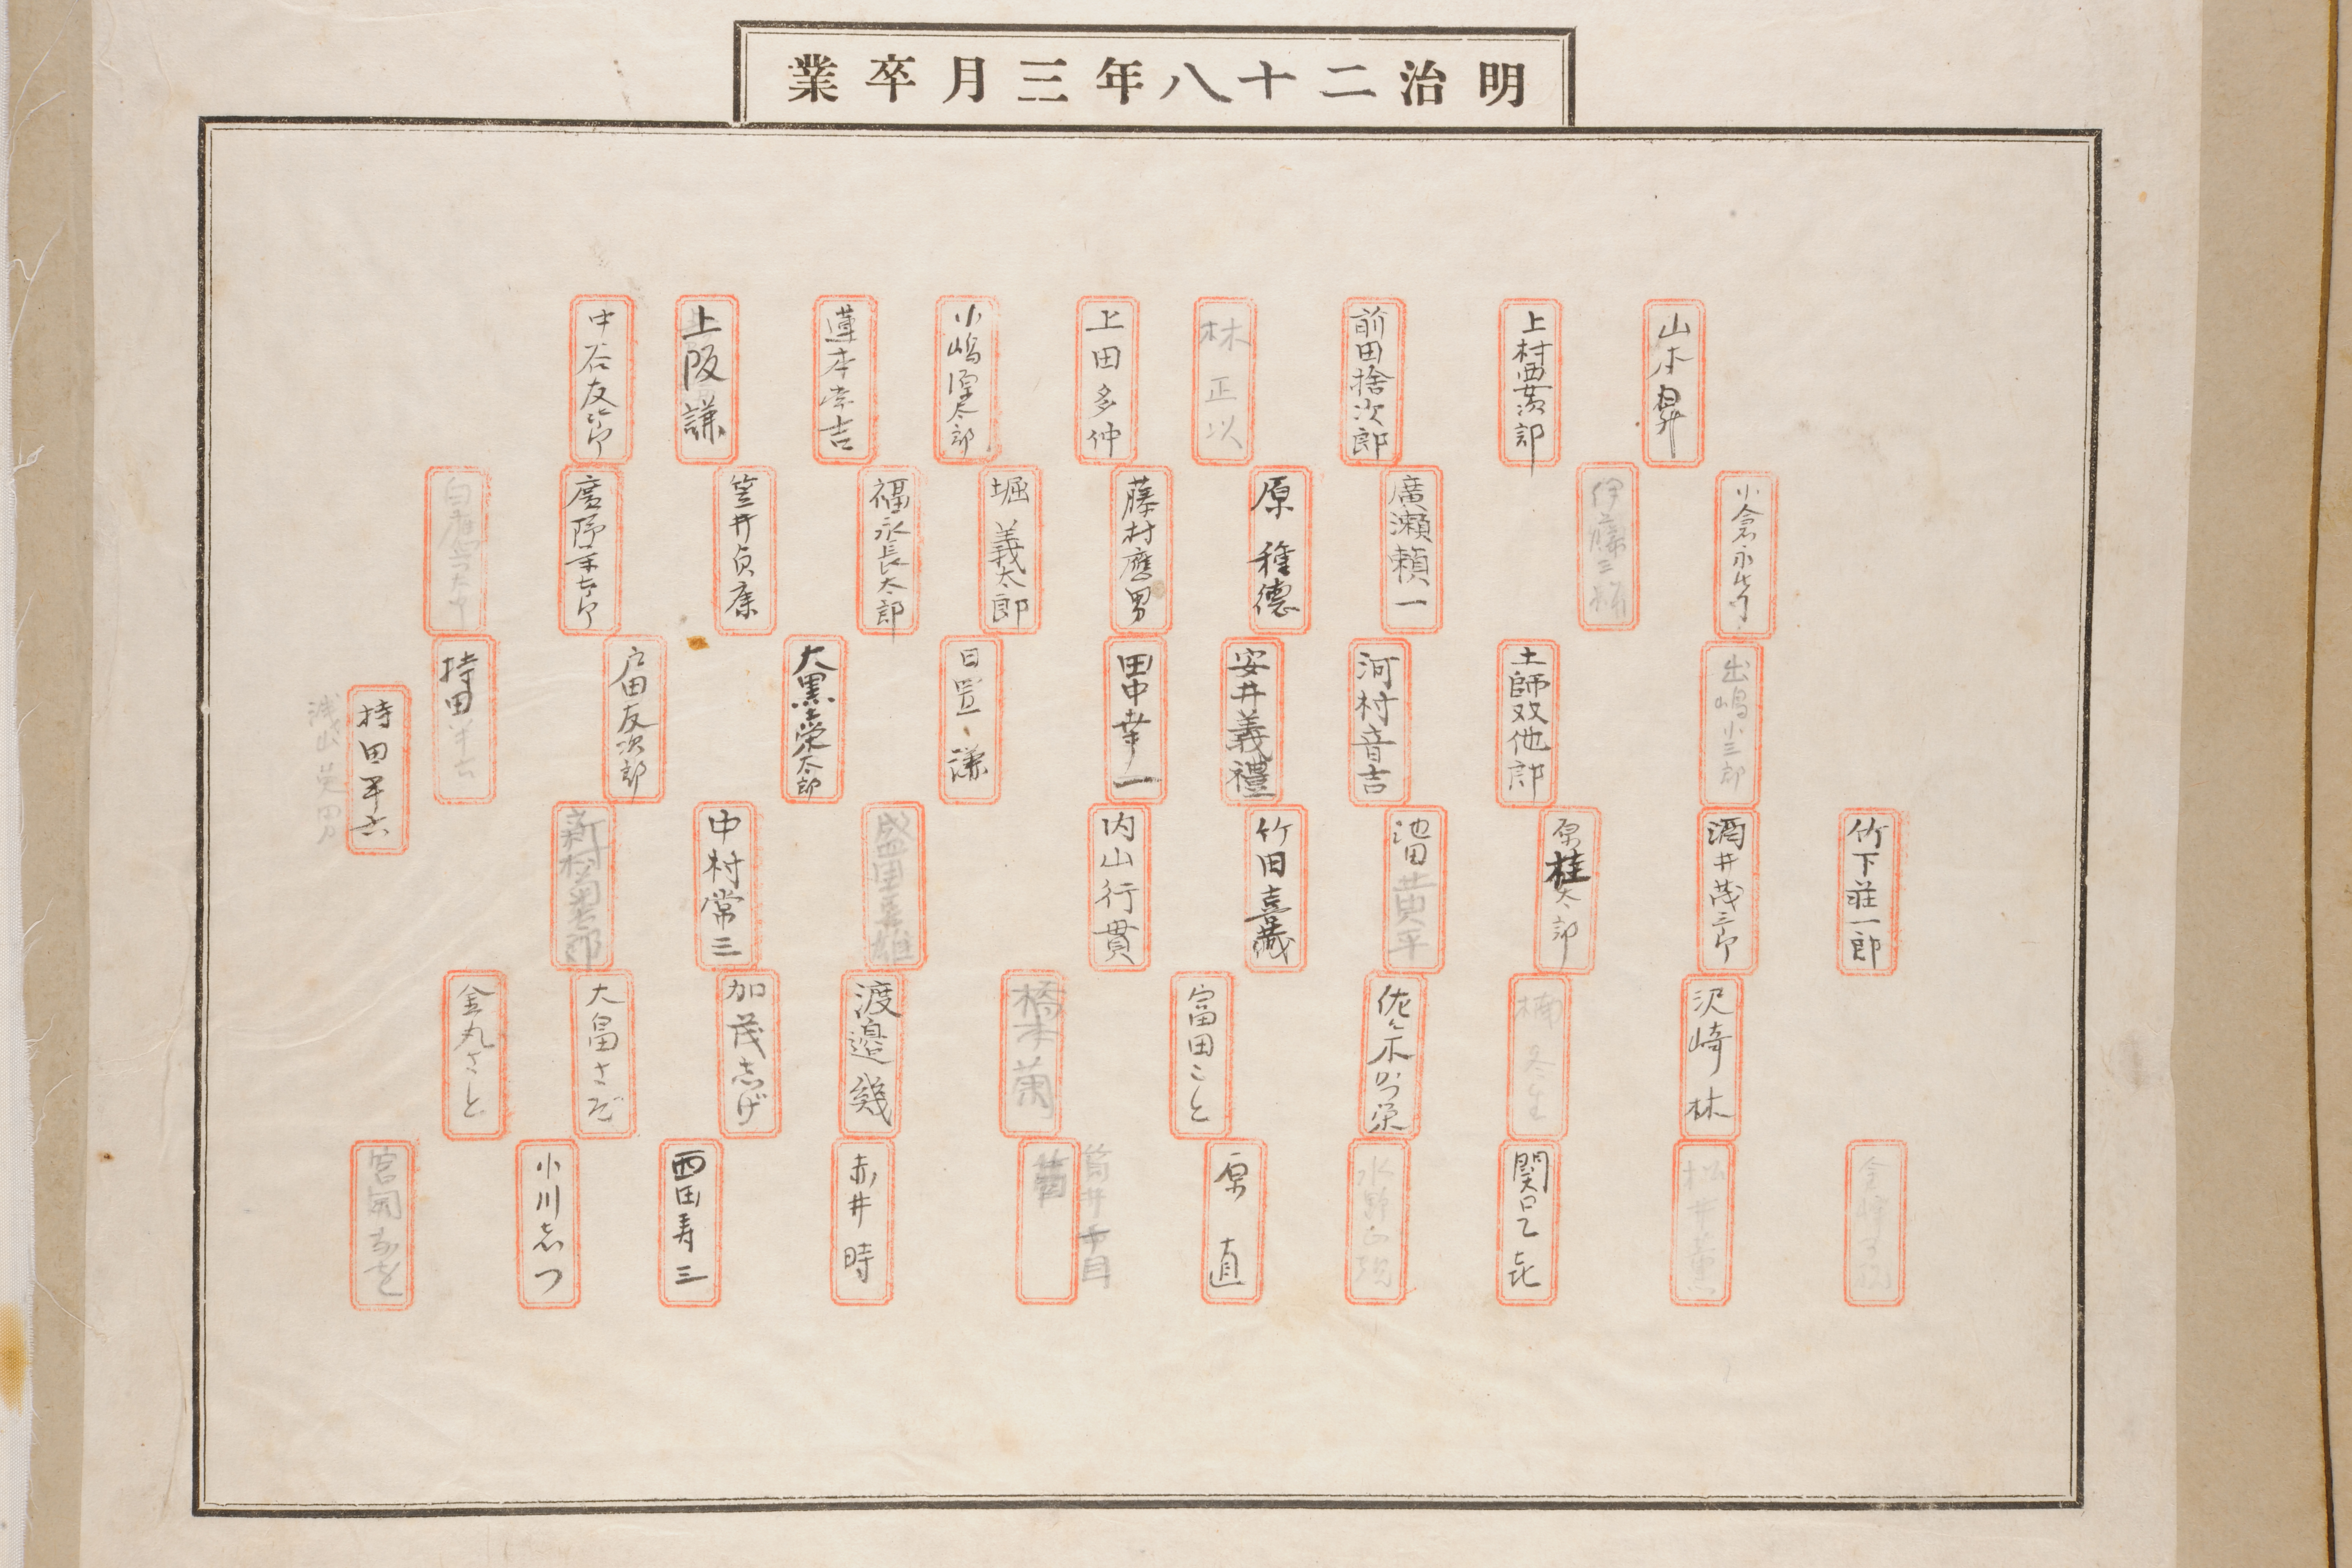 明治二十八年三月卒業
山本昇
上村要次郎
前田捨次郎
林正以
上田多仲
小嶋源太郎
蓮本幸吉
上阪謙
中谷友次郎
小倉永
伊藤三
廣瀬頼一
原種徳
藤村鷹男
堀義太郎
福永長太郎
笠井貞康
廣
出嶋小三郎
土師双他郎
河村音吉
安井義禮
田中幸一
日置謙
大黒栄太郎
戸田友次郎
持田半七
持田平六
浅山英男
竹下荘一郎
酒井茂三郎
原桂太郎
池田黄平
竹田喜蔵
内山行貫
盛田雄
中村常三
新村菊太郎
沢崎林
楠冬生
佐々木栄
富田こと
橋本菊
渡邉幾
加茂志げ
大畠さだ
金丸さと
松井薫
関口乙㐂
水野
原直
筒井
赤井時
西田寿三
小川志つ
宮